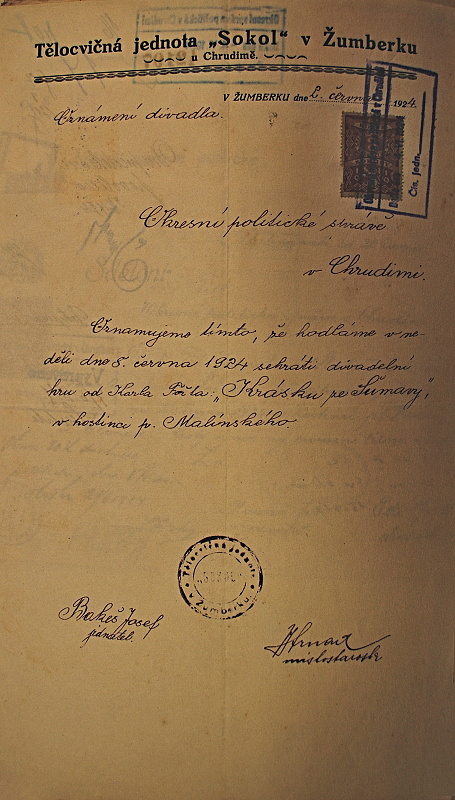 Tělocvičná jednota „Sokol" v Žumberku
u Chrudimě.
V ŽUMBERKU dne 2. června 1924.
Oznámení divadla.
Čís. jedn.
Okresní politické správě
v Chrudimi.
Oznamujeme tímto, že hodláme v ne-
děli dne 8. června 1924 sehráti divadelní
hru od Karla Fořta: „Krásku ze Šumavy",
v hostinci p. Malínského.
Tělocvičná jednota
„SOKOL"
v Žumberku
Bakeš Josef
jednatel.
místostarosta